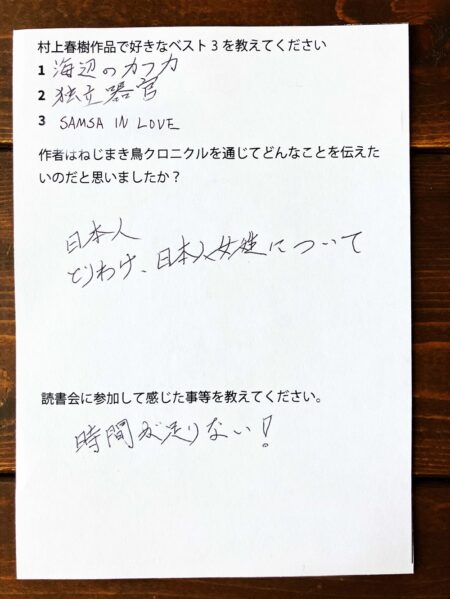 村上春樹作品で好きなベスト3を教えてください
1 海辺のカフカ
2 独立器官
3 SAMSA IN LOVE
作者はねじまき鳥クロニクルを通じてどんなことを伝えた
いのだと思いましたか？
日本人
とりわけ、日本人女性について
読書会に参加して感じた事等を教えてください。
時間が足りない!